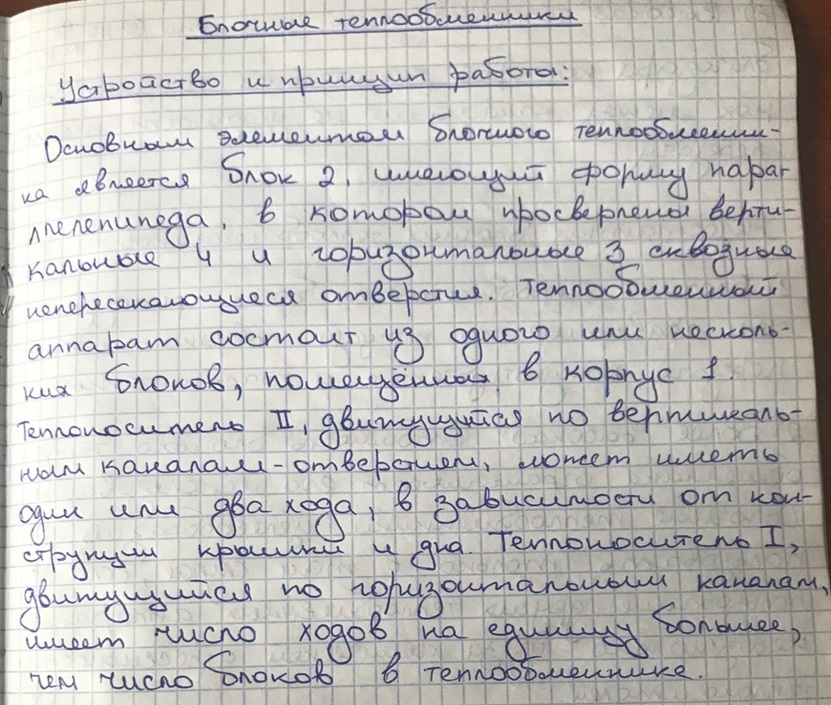 Блочные теплообменники
Устройство и принцип работы:
Основным элементом блочного теплообменни-
ка является блок 2, имеющий форму парал
ллелепипеда, в котором просверлены верти-
кальные 4 и горизонтальные 3 сквозные
непересекающиеся отверстия. Теплообменный
аппарат состоит из одного или несколь-
ких блоков, помещённых в корпус 1.
Теплоноситель II, движущийся по вертикаль-
ным каналам-отверстиям, может иметь
один или два хода, в зависимости от кон-
струкции крышки и дна. Теплоноситель I,
движущийся по горизонтальным каналам,
имеет число ходов на единицу большее,
чем число блоков в теплообменнике.